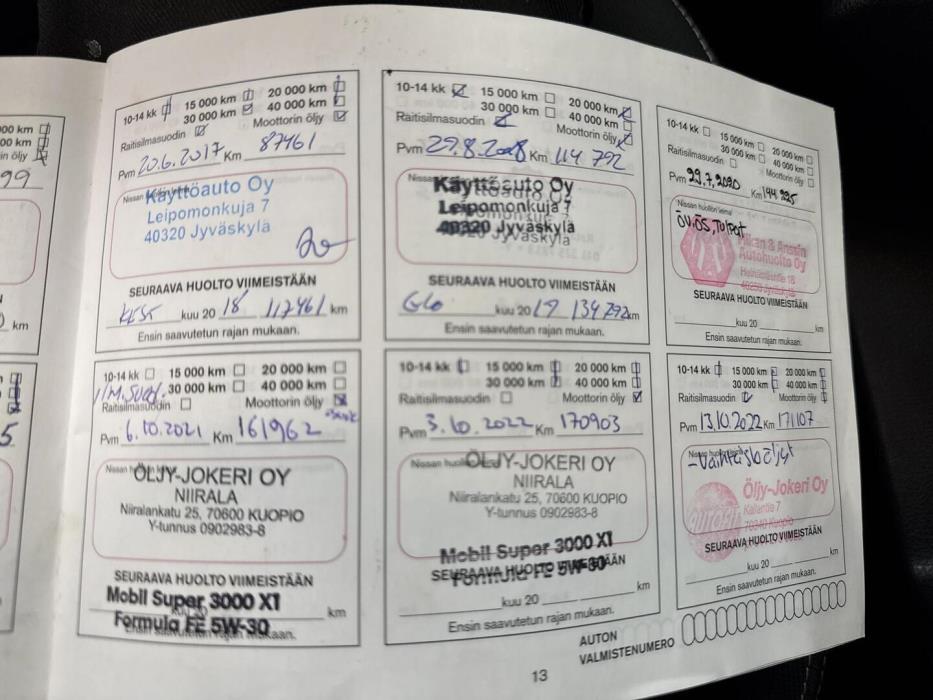 00 km
00 km
in öljy
99
km
5
10-14 kk 15 000 km 20 000 km
30 000 km 40 000 km
Raitisilmasuodin Moottorin öljy
Pvm 20.6.2017 Km 87461
Käyttöauto Oy
Leipomonkuja 7
40320 Jyväskylä
SEURAAVA HUOLTO VIIMEISTÄÄN
kuu 20 18 117461 km
Ensin saavutetun rajan mukaan.
10-14 kk 15 000 km 20 000 km
30 000 km 40 000 km
Raitisilmasuodin Moottorin öljy
Pvm 29.8.2018 Km 114 792
Käyttöauto Oy
Leipomonkuja 7
40320 Jyväskylä
SEURAAVA HUOLTO VIIMEISTÄÄN
kuu 20 19 134792 km
Ensin saavutetun rajan mukaan.
10-14 kk 15 000 km 20 000 km
30 000 km 40 000 km
Raitisilmasuodin Moottorin öljy
Pvm 29.7.2020 Km 144 225
Nissan huollon leima
ÖV.ÖS, Tulpat
Mikan & Anssin
Autohuolto Oy
SEURAAVA HUOLTO VIIMEISTÄÄN
kuu 20 km
Ensin saavutetun rajan mukaan.
10-14 kk 15 000 km 20 000 km
30 000 km 40 000 km
Raitisilmasuodin Moottorin öljy
Pvm 6.10.2021 Km 161962
ÖLJY-JOKERI OY
NIIRALA
Niiralankatu 25, 70600 KUOPIO
Y-tunnus 0902983-8
SEURAAVA HUOLTO VIIMEISTÄÄN
Mobil Super 3000 X1
kuu 20 km
Formula FE 5W-30
Ensin saavutetun rajan mukaan.
10-14 kk 15 000 km 20 000 km
30 000 km 40 000 km
Raitisilmasuodin Moottorin öljy
Pvm 3.10.2022 Km 170903
ÖLJY-JOKERI OY
NIIRALA
Niiralankatu 25, 70600 KUOPIO
Y-tunnus 0902983-8
Mobil Super 3000 X1
SEURAAVA HUOLTO VIIMEISTÄÄN
Formula FE 5W-30
kuu 20 km
Ensin saavutetun rajan mukaan.
10-14 kk 15 000 km 20 000 km
30 000 km 40 000 km
Raitisilmasuodin Moottorin öljy
Pvm 13.10.2022 Km 171107
Öljy-Jokeri Oy
Kallantie 7
70340 Kuopio
SEURAAVA HUOLTO VIIMEISTÄÄN
kuu 20 km
Ensin saavutetun rajan mukaan.
AUTON
VALMISTENUMERO
13